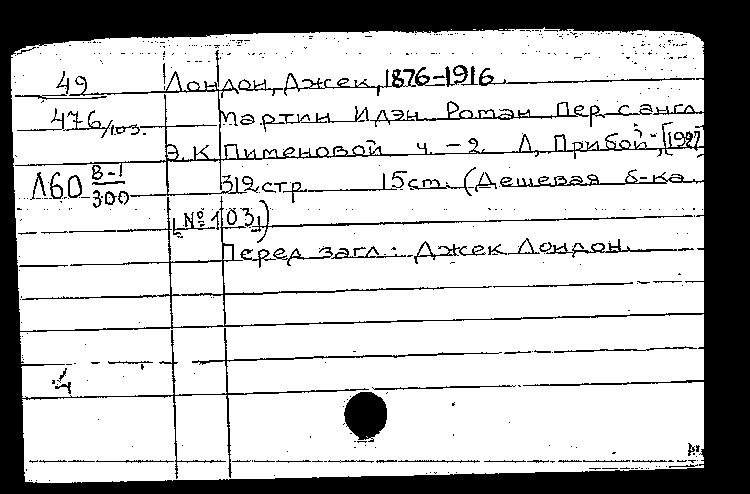 49 Лондон, Джек, 1876-1916.
476/103. Мартин Идэн Роман Пер с англ
Э. К. Пименовой ч. - 2. Л, Прибой, [1927]
Л60 В-1/300 312 стр 15 см. (Дешевая б-ка
[№ 103])
Перед загл.: Джек Лондон.